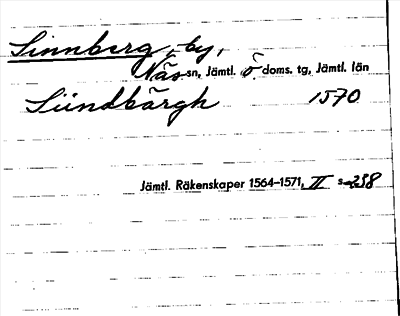 Sinnberg, by,
Näs sn, Jämtl. ö. doms. tg, Jämtl. län
Sündbärgh 1570
Jämtl. Räkenskaper 1564-1571, II s 238